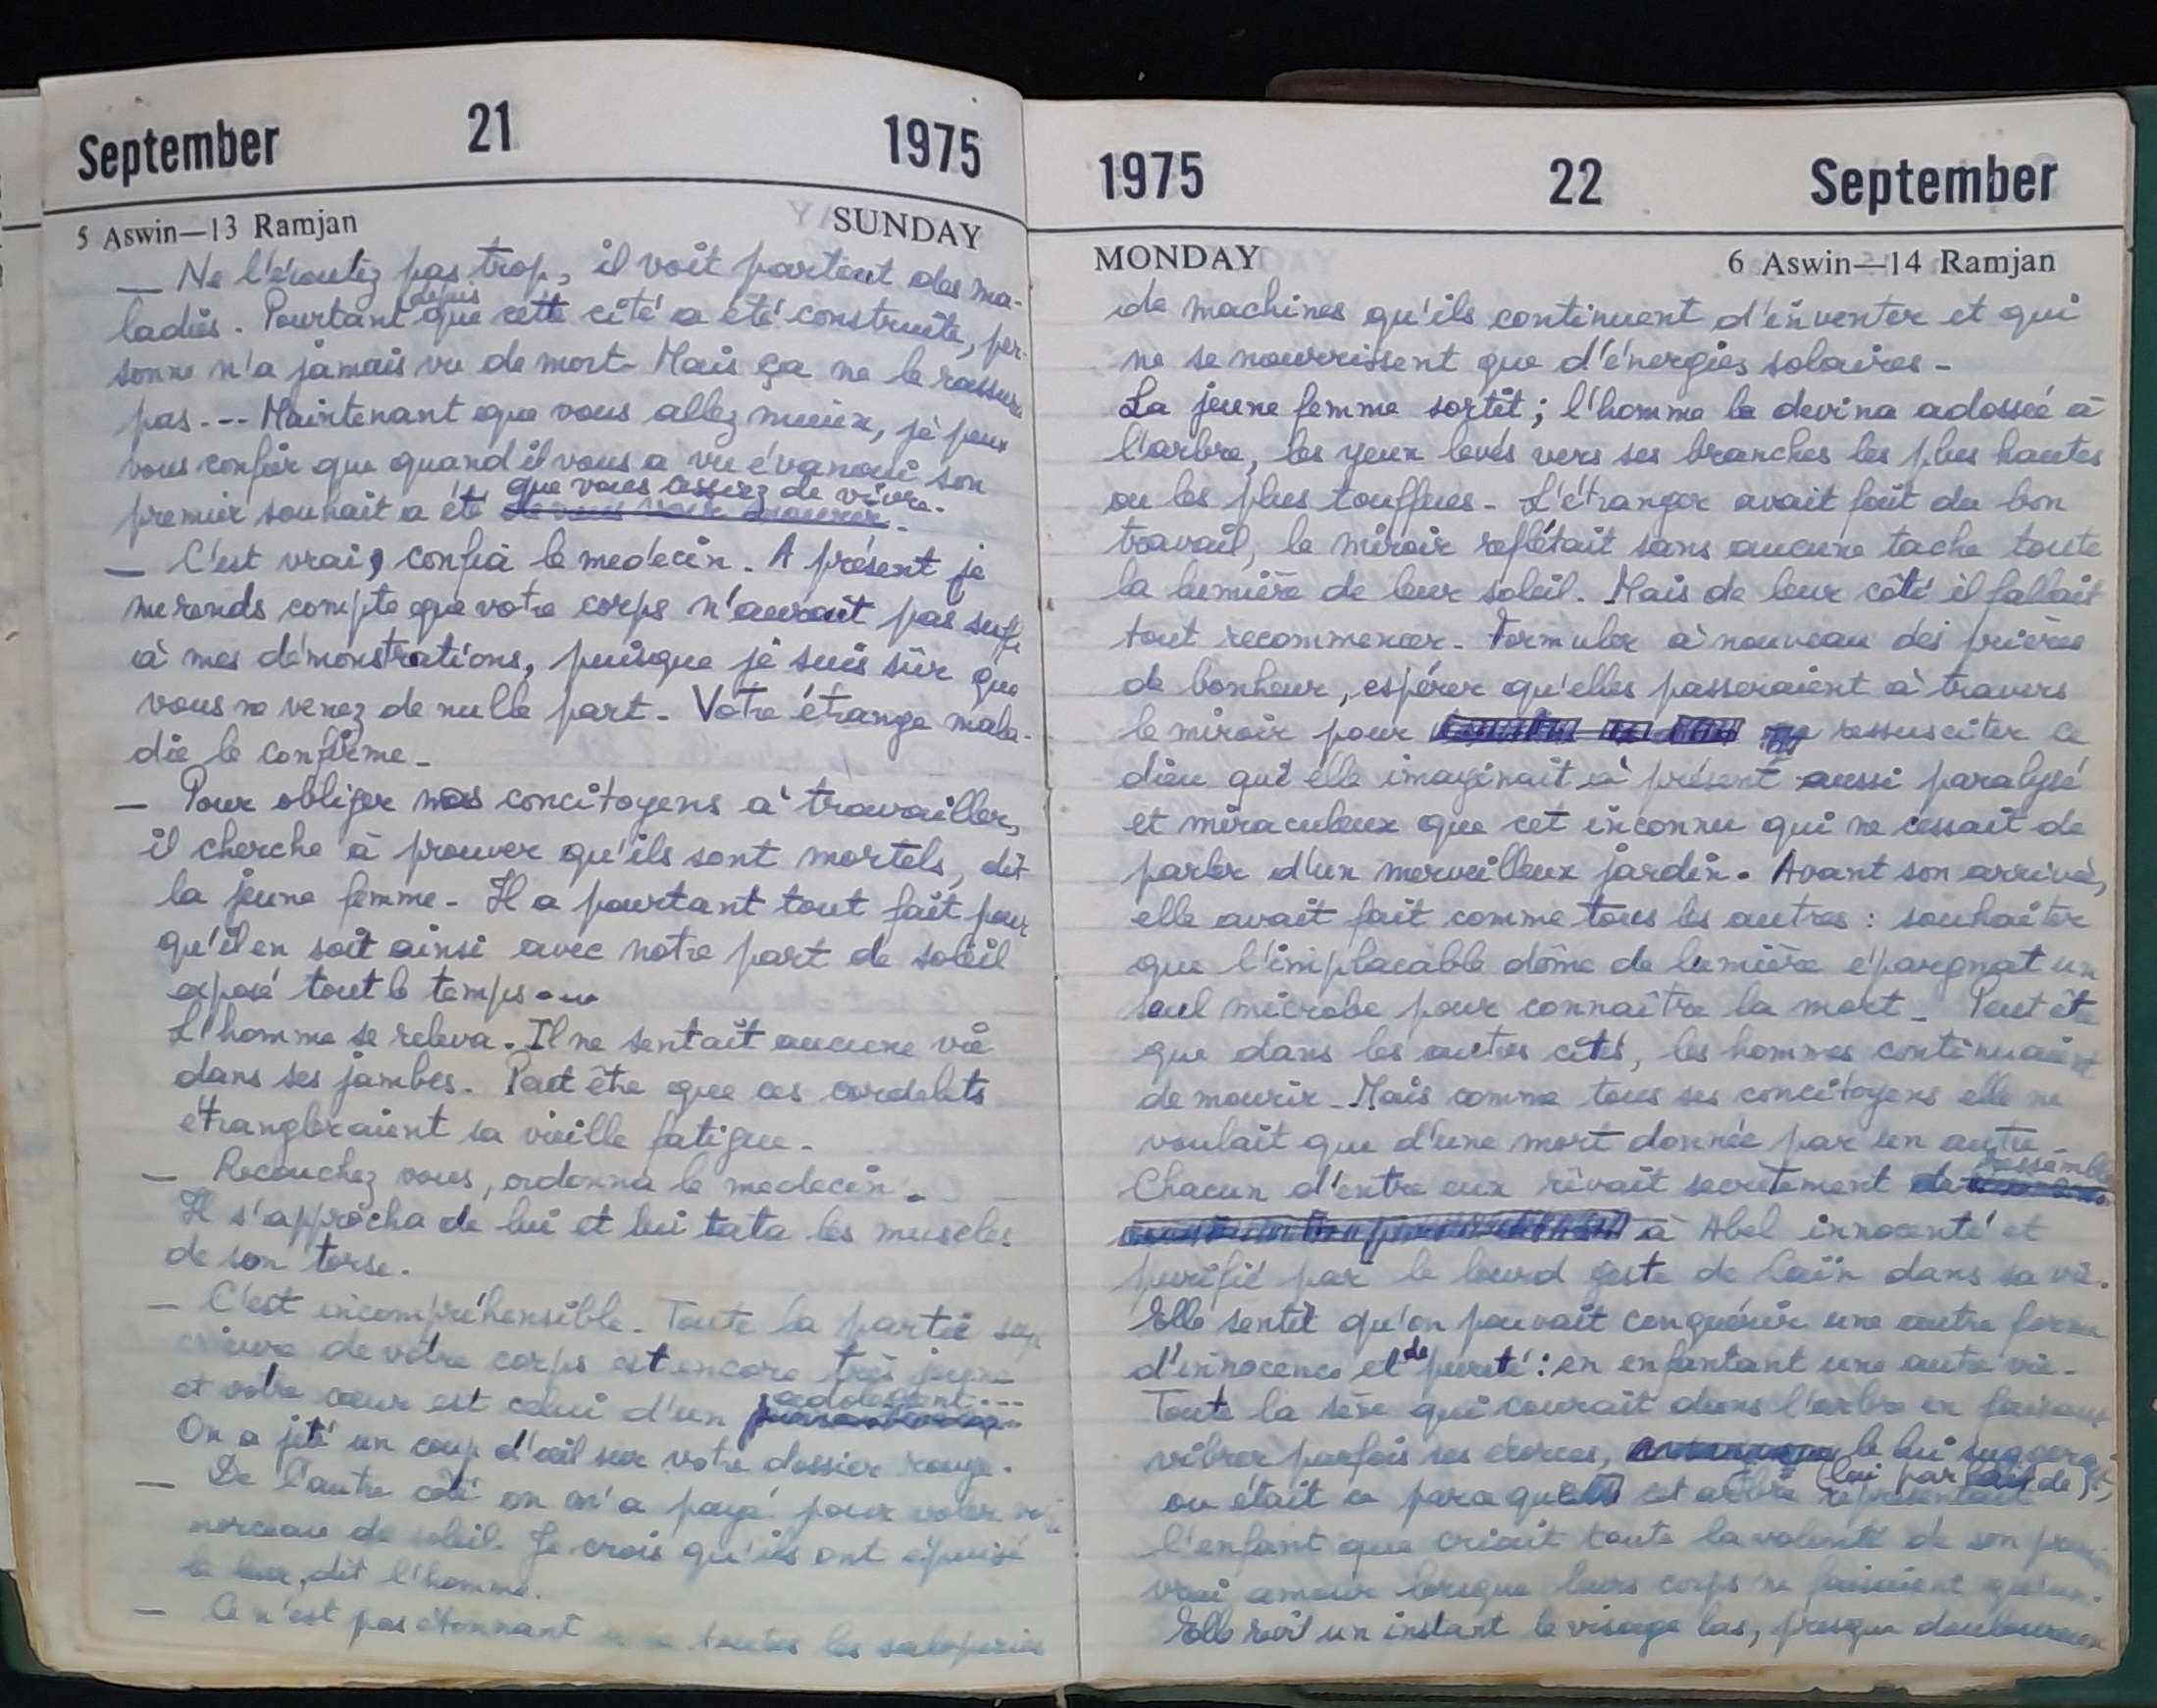 September 21 1975
5 Aswin—13 Ramjan SUNDAY
— Ne l'écoutez pas trop, il voit partout des ma-
depuis
ladies. Pourtant que cette cité a été construite, per-
sonne n'a jamais vu de mort. Mais ça ne le rassure
pas... Maintenant que vous allez mieux, je peux
vous confier que quand il vous a vu évanoui son
que vous cessiez de vivre.
premier souhait a été de vous voir mourir.
— C'est vrai, confia le medecin. A présent je
me rends compte que votre corps n'aurait pas suffi
à mes démonstrations, puisque je suis sûr que
vous ne venez de nulle part. Votre étrange mala-
die le confirme.
— Pour obliger nos concitoyens à travailler,
il cherche à prouver qu'ils sont mortels, dit
la jeune femme. Il a pourtant tout fait pour
qu'il en soit ainsi avec notre part de soleil
exposé tout le temps...
L'homme se releva. Il ne sentait aucune vie
dans ses jambes. Peut être que ces cordelets
étrangleraient sa vieille fatigue.
— Recouchez vous, ordonna le medecin.
Il s'approcha de lui et lui tata les muscles
de son torse.
— C'est incompréhensible. Toute la partie sup
érieure de votre corps est encore très jeune
adolescent...
et votre cœur est celui d'un
On a jeté un coup d'œil sur votre dossier rouge.
— De l'autre côté on m'a payé pour voler
morceau de soleil. Je crois qu'ils ont épuisé
le leur, dit l'homme.
— Ce n'est pas étonnant toutes les saloperies
1975 22 September
MONDAY 6 Aswin—14 Ramjan
de machines qu'ils continuent d'inventer et qui
ne se nourrissent que d'énergies solaires.
La jeune femme sortit; l'homme la devina adossée à
l'arbre, les yeux levés vers ses branches les plus hautes
ou les plus touffues. L'étranger avait fait du bon
travail, le miroir reflétait sans aucune tache toute
la lumière de leur soleil. Mais de leur côté il fallait
tout recommencer. Formuler à nouveau des prières
de bonheur, espérer qu'elles passeraient à travers
le miroir pour ressusciter ce
dieu qu'elle imaginait à présent aussi paralysé
et miraculeux que cet inconnu qui ne cessait de
parler d'un merveilleux jardin. Avant son arrivée,
elle avait fait comme tous les autres : souhaiter
que l'implacable dôme de lumière épargnat un
seul microbe pour connaître la mort. Peut être
que dans les autres cités, les hommes continuaient
de mourir. Mais comme tous ses concitoyens elle ne
voulait que d'une mort donnée par un autre.
ressembler
Chacun d'entre eux rêvait secrètement de
à Abel innocenté et
purifié par le lourd geste de Caïn dans sa vie.
Elle sentit qu'on pouvait conquérir une autre forme
de
d'innocence et pureté : en enfantant une autre vie.
Toute la sève qui courait dans l'arbre en faisant
vibrer parfois ses écorces, le lui suggerait,
lui parlait de
ou était ce parce que cet arbre représentait
l'enfant que criait toute la volonté de son
vrai amour lorsque leurs corps ne faisaient qu'un.
Elle revit un instant le visage las, presque douloureux